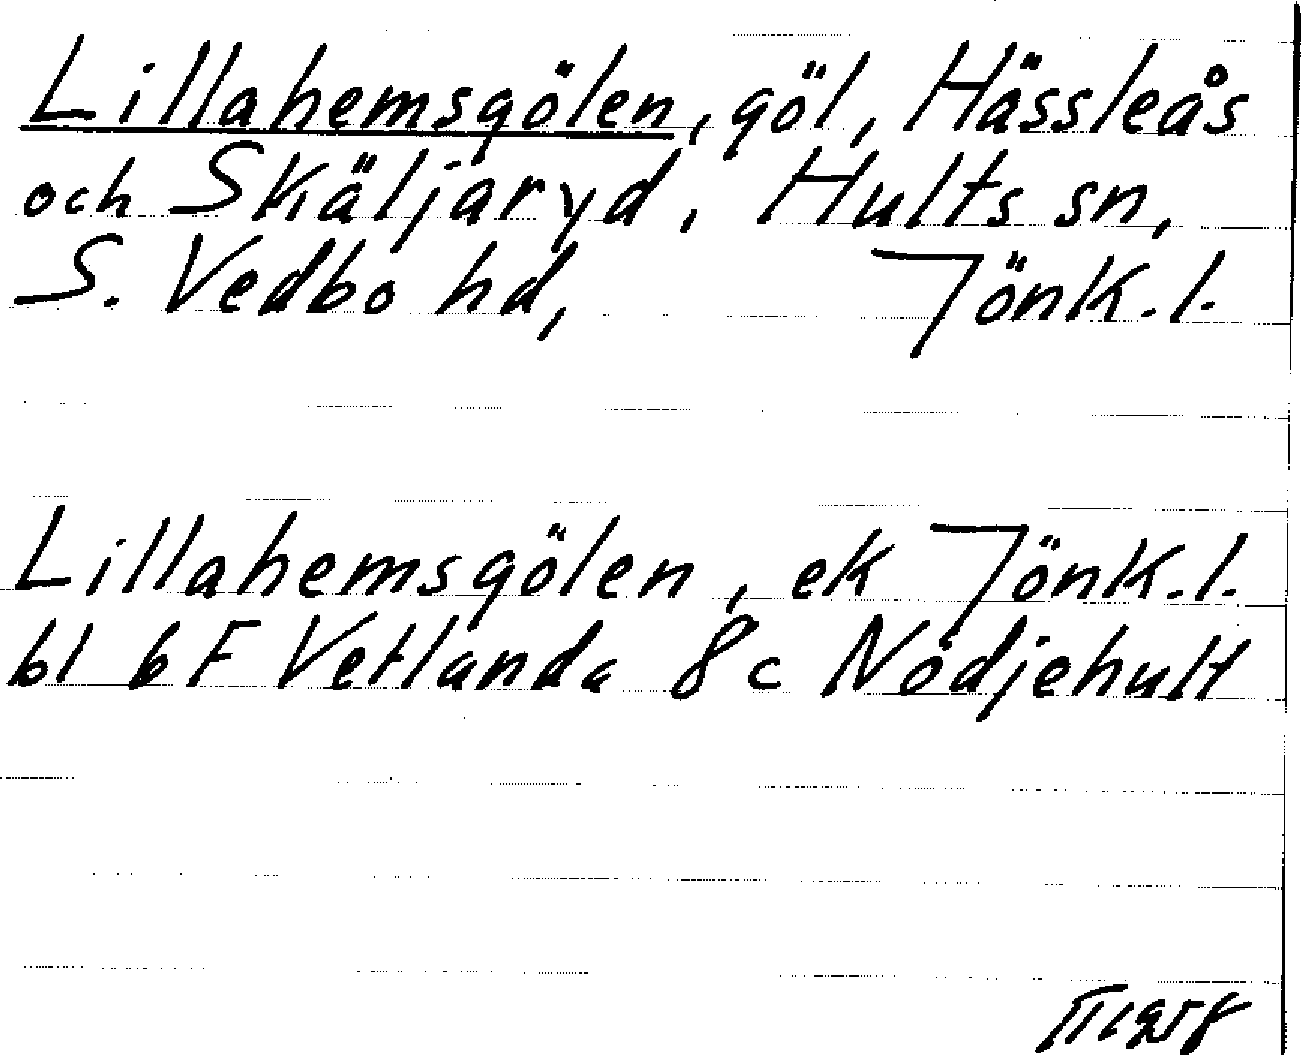 Lillahemsgölen, göl, Hässleås
och Skäljaryd, Hults sn,
S. Vedbo hd, Jönk.l.
Lillahemsgölen, ek Jönk.l.
bl 6F Vetlanda 8c Nödjehult